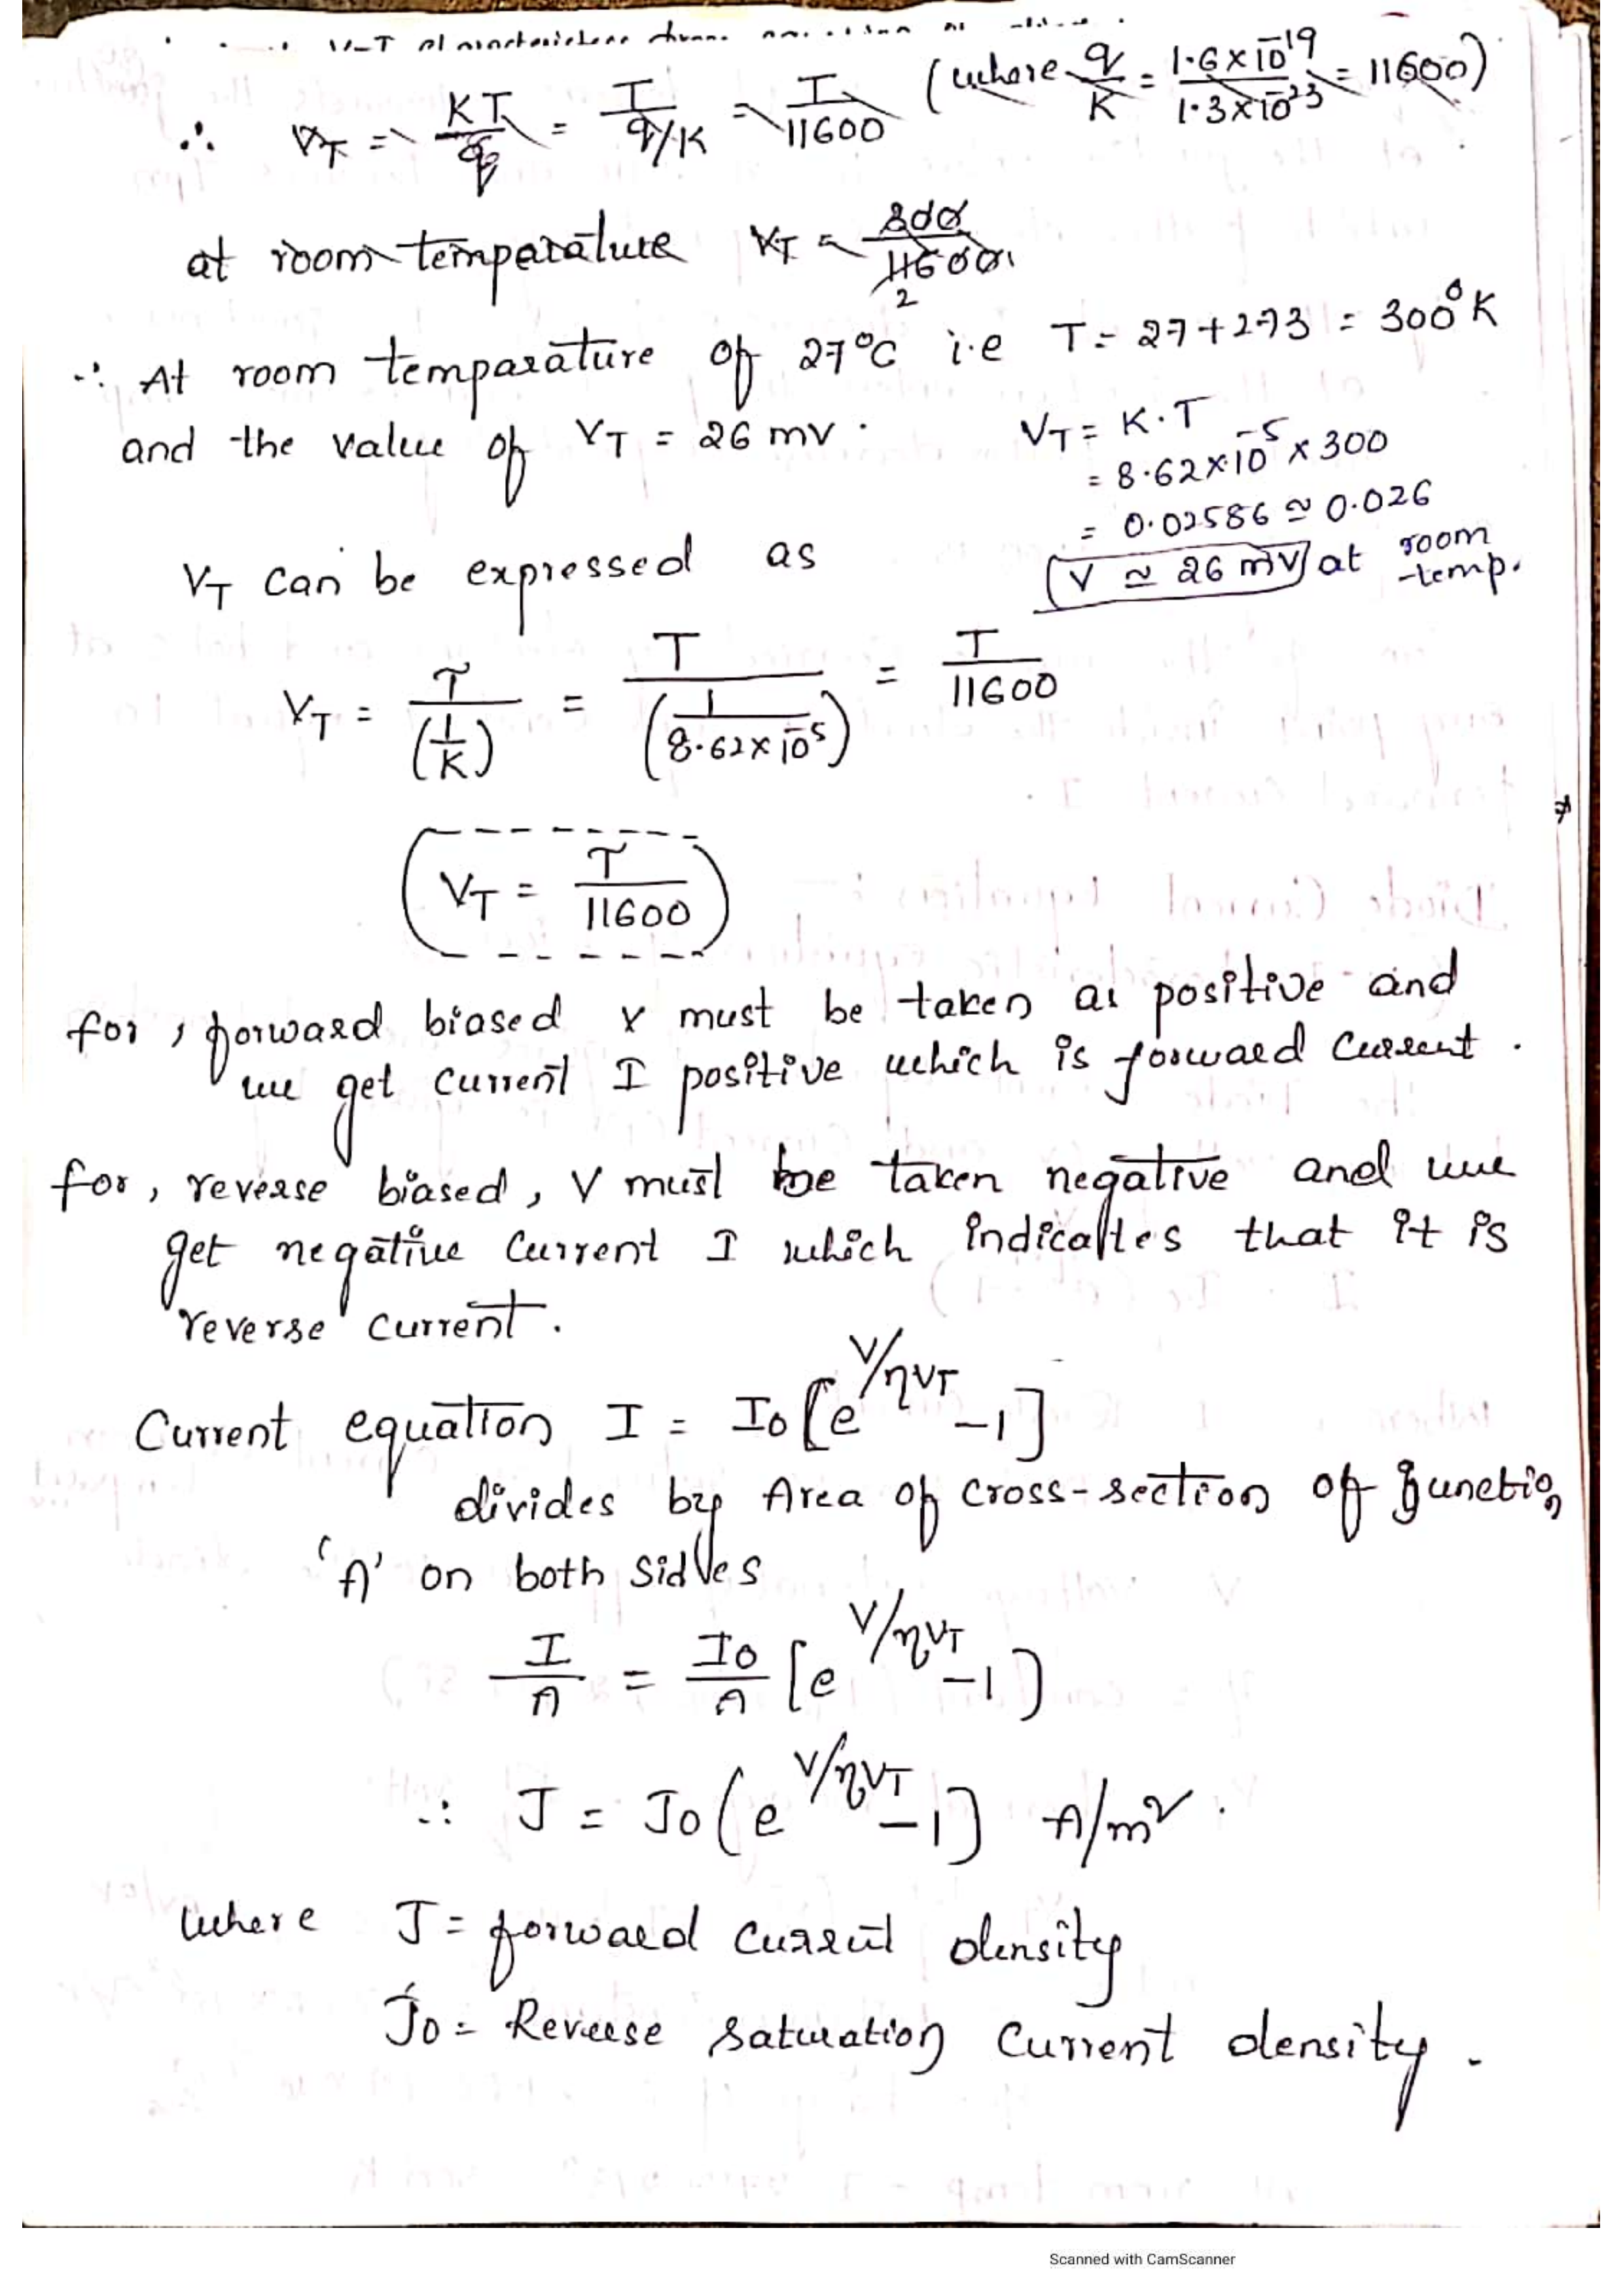 V-T
∴ VT = KT/q = T/q/K = T/11600 (where q/K = 1.6×10^-19/1.3×10^-23 = 11600)
at room temperature VT = 300/11600
2
∴ At room temparature of 27°C i.e T = 27+273 = 300°K
and the value of VT = 26 mv.
VT = K.T
= 8.62×10^-5 × 300
= 0.02586 ≃ 0.026
V ≃ 26 mV at room temp.
VT can be expressed as
VT = T/(1/K) = T/(1/8.62×10^-5) = T/11600
VT = T/11600
for, forward biased V must be taken as positive and
we get current I positive which is forward current.
for, reverse biased, V must be taken negative and we
get negative current I which indicates that it is
reverse current.
Current equation I = Io[e^V/ηVT -1]
divides by Area of cross-section of junction
'A' on both sides
I/A = Io/A [e^V/ηVT -1]
∴ J = Jo(e^V/ηVT -1] A/m².
where J = forward current density
Jo = Reverse saturation current density.
Scanned with CamScanner